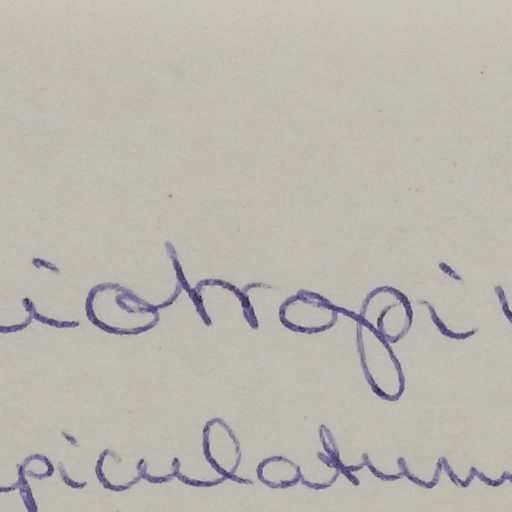 iotropi
piculatum